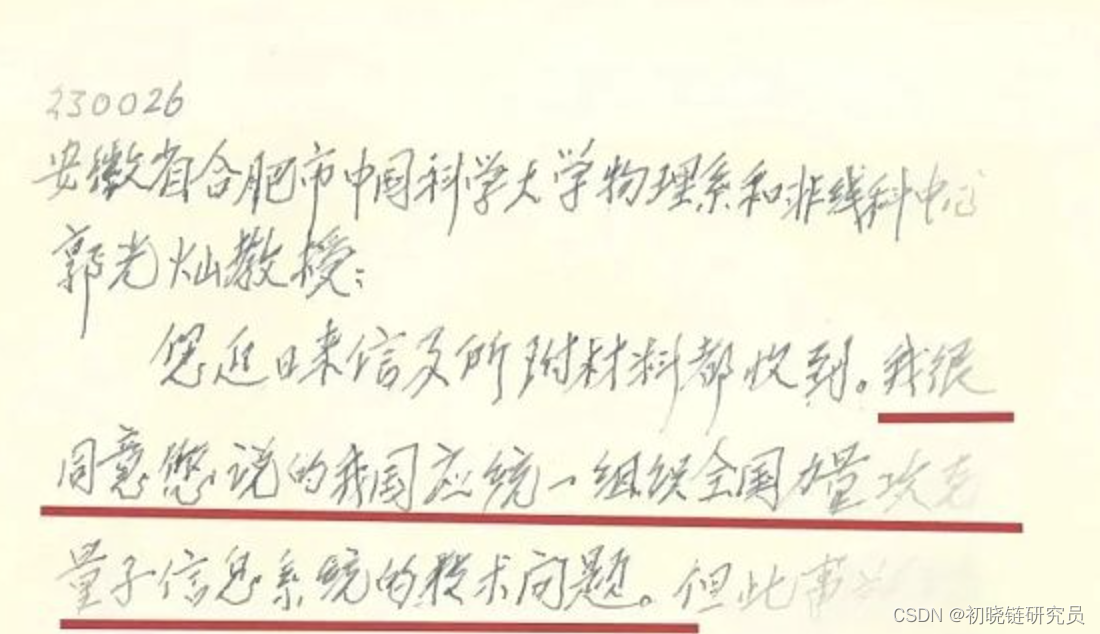 230026
安徽省合肥市中国科学大学物理系和非线科中心
郭光灿教授：
您近日来信及所附材料都收到。我很
同意您说的我国应统一组织全国力量攻克
量子信息系统的技术问题。但此事
CSDN @初晓链研究员